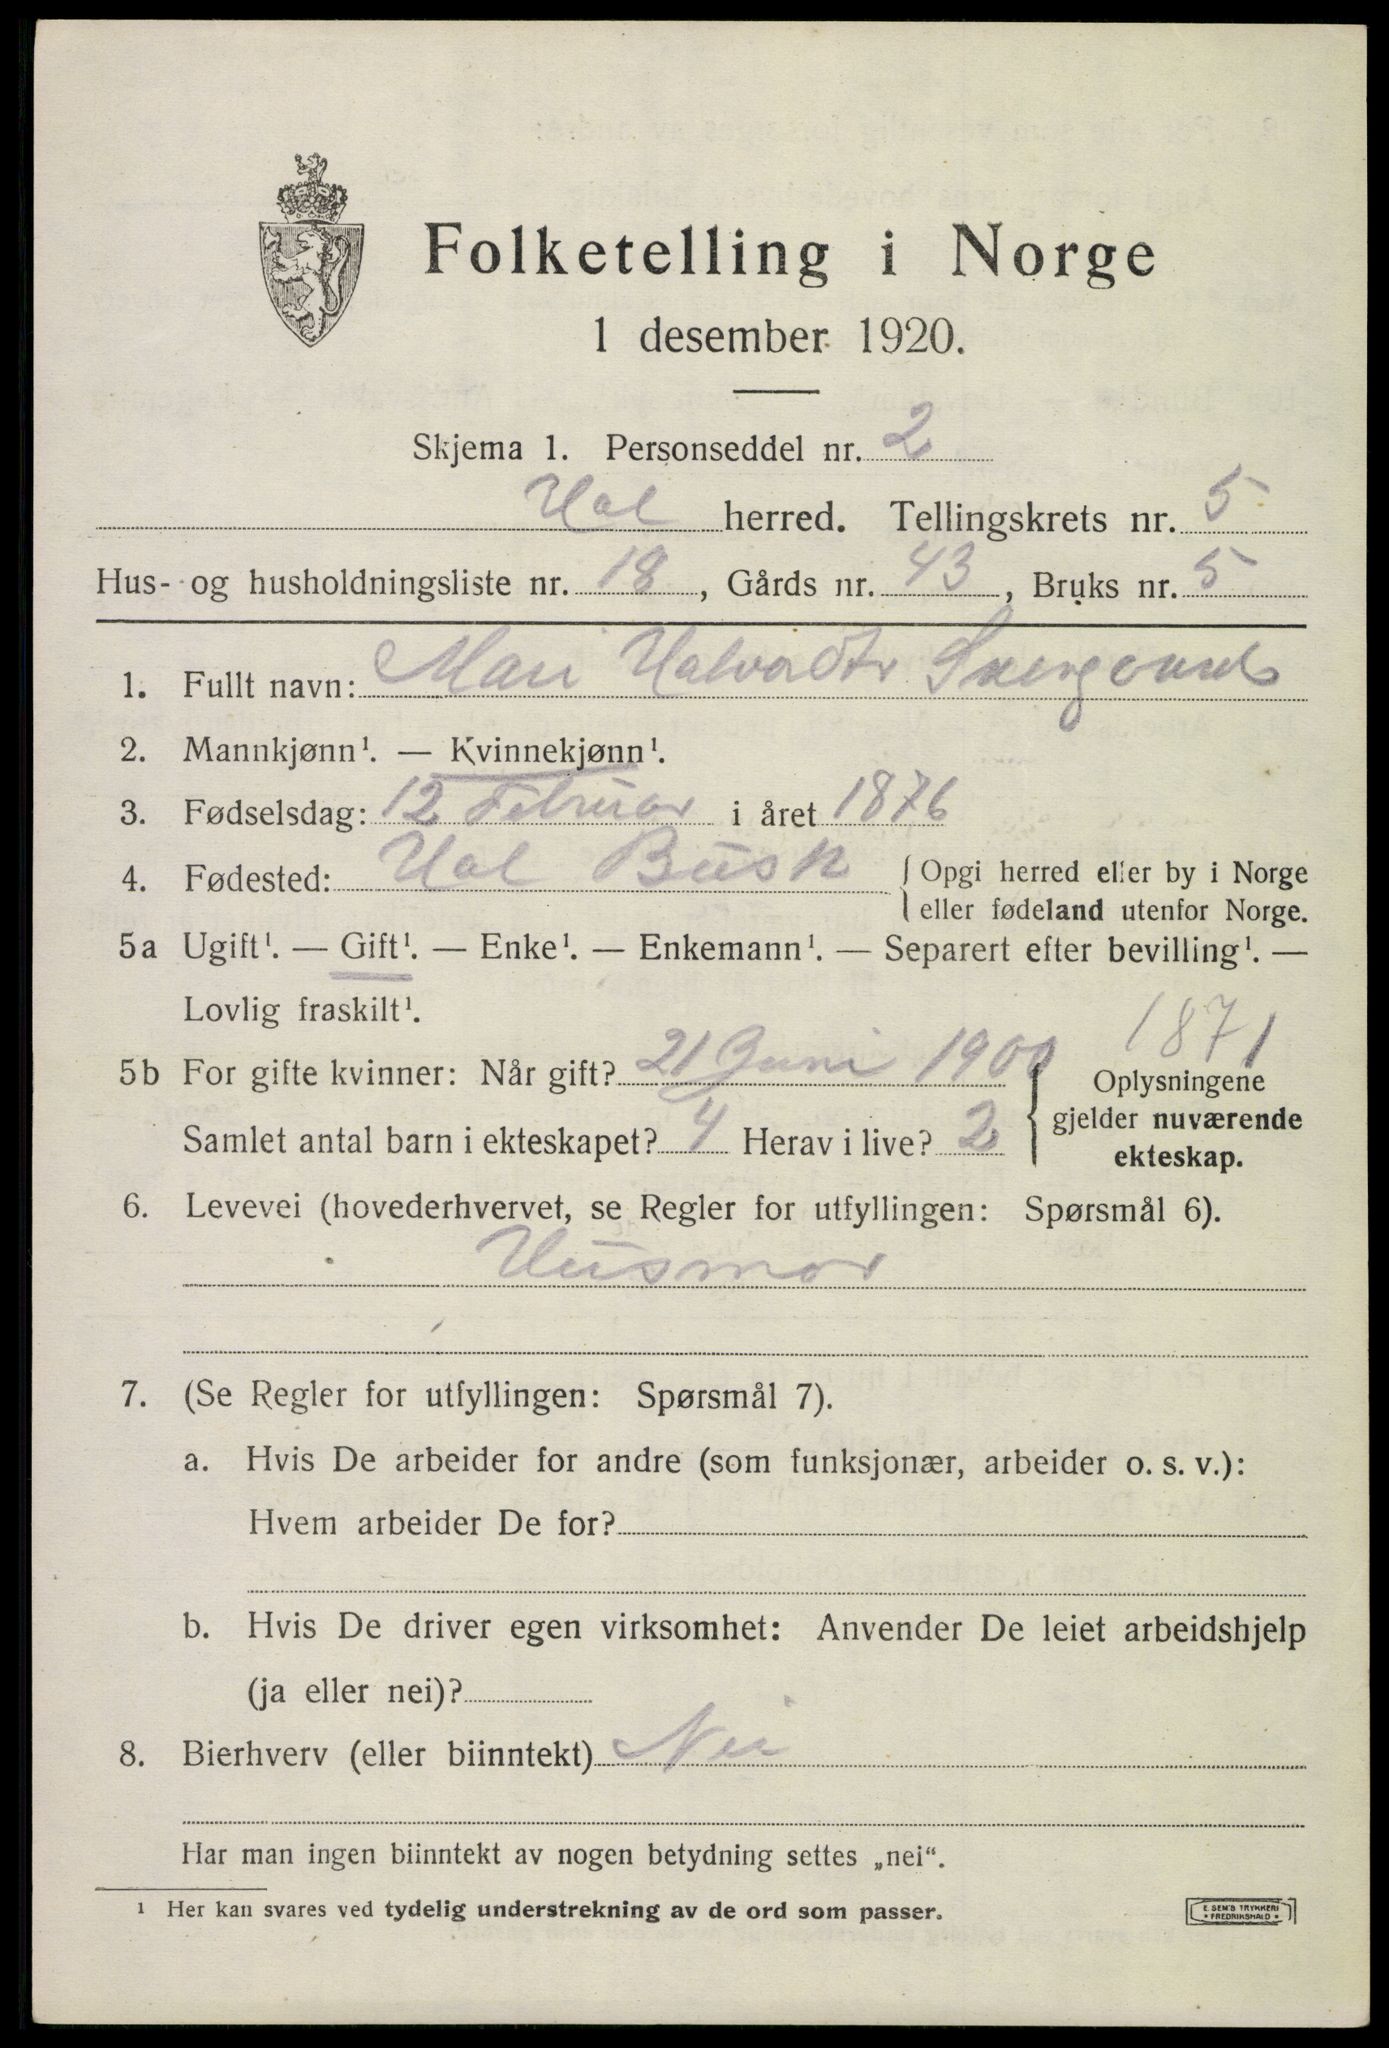 Folketelling i Norge
1 desember 1920.
Skjema 1. Personseddel nr. 2
Hol herred. Tellingskrets nr. 5
Hus- og husholdningsliste nr. 18, Gårds nr. 43, Bruks nr. 5
1. Fullt navn: Mari Halvordtr
2. Mannkjønn¹. — Kvinnekjønn¹.
3. Fødselsdag: 12 Februar i året 1876
4. Fødested: Hol Busk { Opgi herred eller by i Norge
eller fødeland utenfor Norge.
5a Ugift¹. — Gift¹. — Enke¹. — Enkemann¹. — Separert efter bevilling¹. —
Lovlig fraskilt¹.
1871
5b For gifte kvinner: Når gift? 21 Juni 1900
Samlet antal barn i ekteskapet? 4 Herav i live? 2
{ Oplysningene
gjelder nuværende
ekteskap.
6. Levevei (hovederhvervet, se Regler for utfyllingen: Spørsmål 6).
Husmor
7. (Se Regler for utfyllingen: Spørsmål 7).
a. Hvis De arbeider for andre (som funksjonær, arbeider o. s. v.):
Hvem arbeider De for?
b. Hvis De driver egen virksomhet: Anvender De leiet arbeidshjelp
(ja eller nei)?
8. Bierhverv (eller biinntekt) Nei
Har man ingen biinntekt av nogen betydning settes „nei“.
¹ Her kan svares ved tydelig understrekning av de ord som passer.
E. SEM'S TRYKKERI
• FREDRIKSHALD •